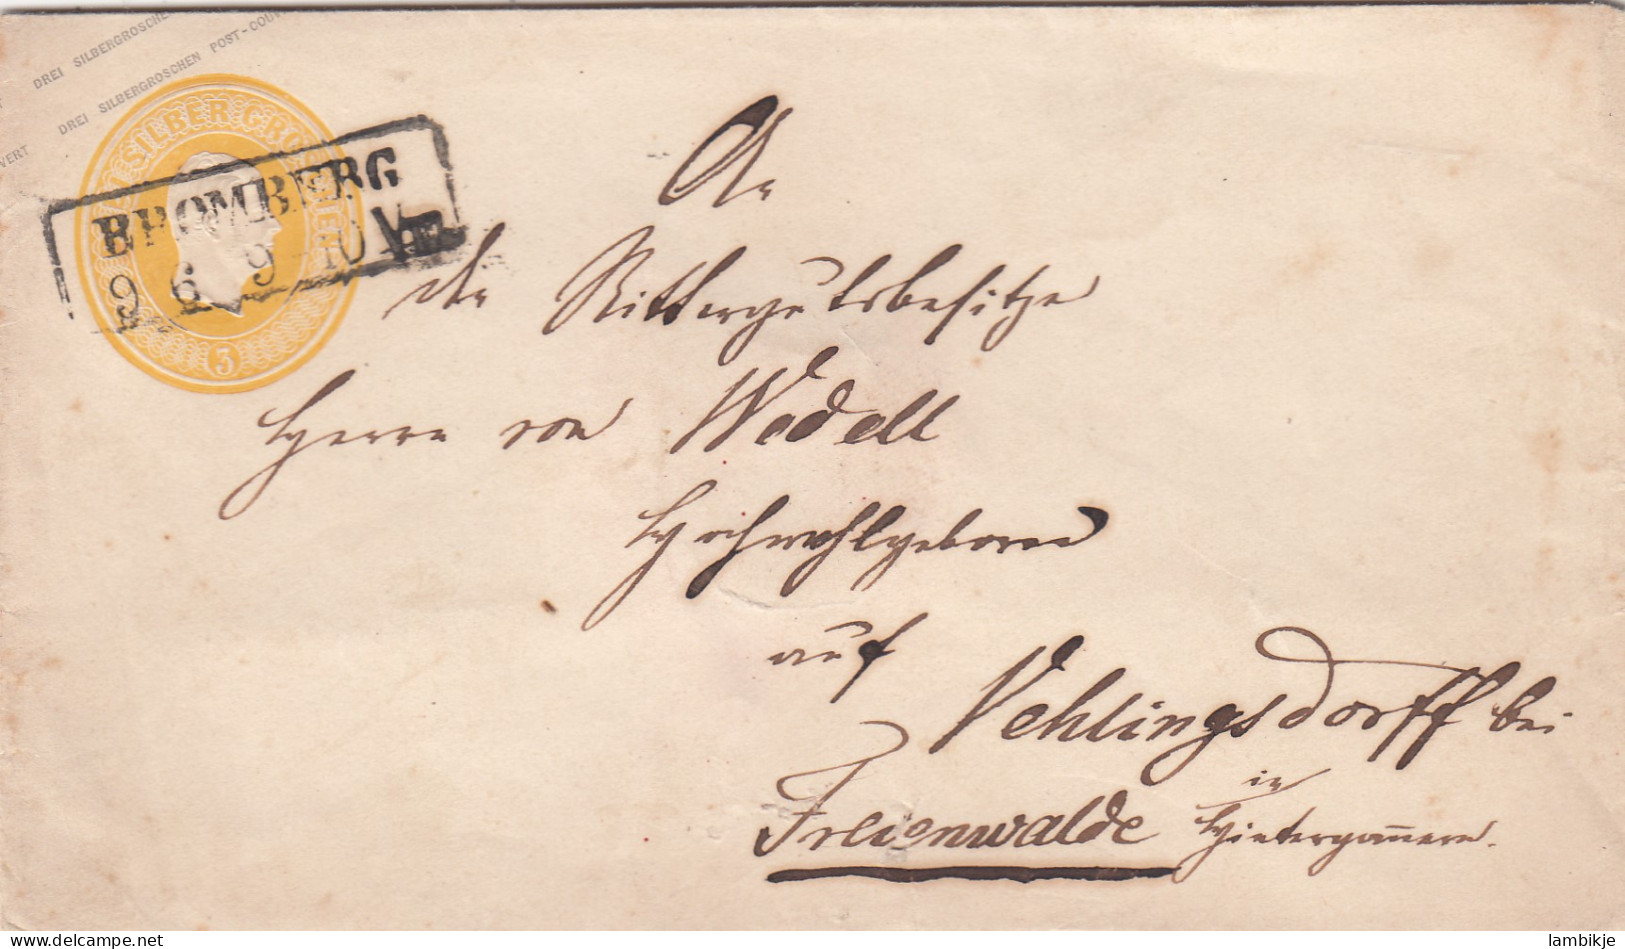 DREI SILBERGROSCHEN
DREI SILBERGROSCHEN POST-COUV
VERT
DREI SILBER GROSCHEN
3
BROMBERG
9 6 9-10 V
An
den Rittergutsbesitzer
Herrn von Wedell
Hochwohlgeboren
auf
Vehlingsdorff bei
Freienwalde in
Hinterpom̄ern.
lambikje